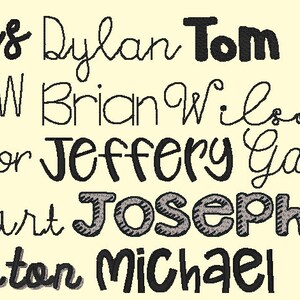 s Dylan Tom
W Brian Wilso
or Jeffery Ga
art Joseph
ton Michael